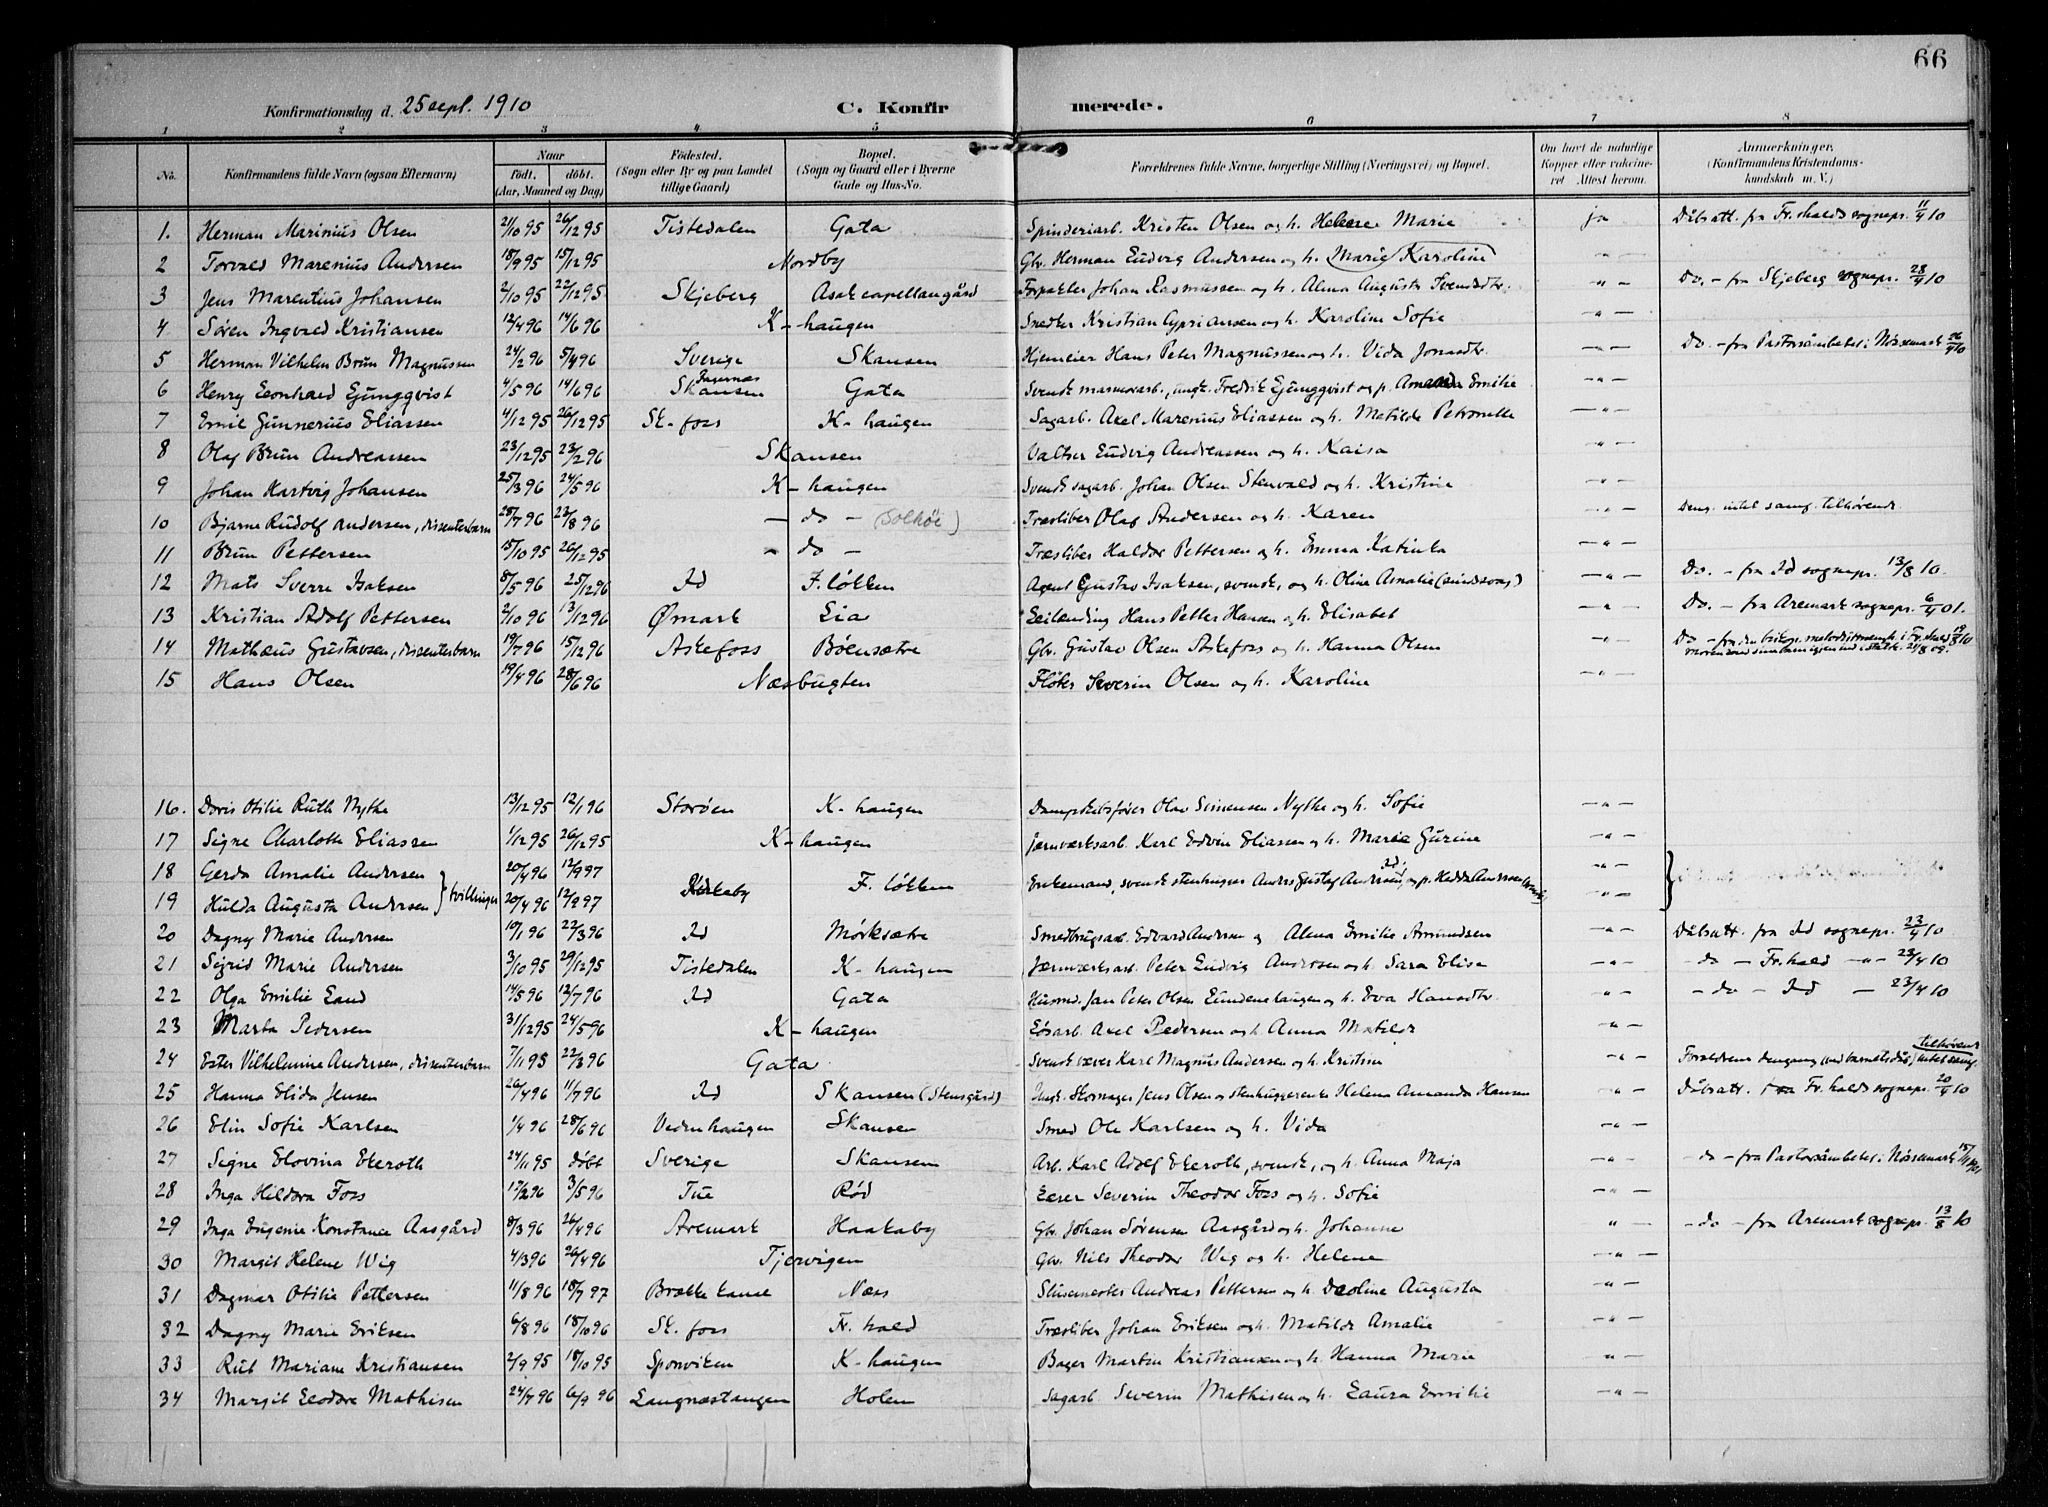 66
Konfirmationsdag d. 25 sept. 1910 C. Konfir merede.
1 2 3 4 5 6 7 8
No. Konfirmandens fulde Navn (ogsaa Efternavn) Naar født. døbt. (Aar, Maaned og Dag) Fødested. (Sogn eller By og paa Landet tillige Gaard) Bopæl. (Sogn og Gaard eller i Byerne Gade og Hus-No. Forældrenes fulde Navne, borgerlige Stilling (Næringsvei) og Bopæl. Om havt de naturlige Kopper eller vaccineret Attest herom. Anmerkninger. (Konfirmandens Kristendomskundskab m. V.)
1. Herman Marinius Olsen 2/10 95 26/12 95 Tistedalen Gata Spinderiarb. Kristen Olsen og h. Helene Marie ja Dåbsatt. fra Fr.halds sognepr. 11/4 10
2 Torvald Marenius Andersen 18/9 95 15/12 95 Nordby Gbr. Herman Ludvig Andersen og h. Marie Karoline -"-
3 Jens Marentius Johansen 2/10 95 22/12 95 Skjeberg Asak capellangård Forpakter Johan Rasmussen og h. Alma Augusta Svendsdtr. -"- Do. - fra Skjeberg sognepr. 28/4 10
4 Søren Ingvald Kristiansen 12/4 96 14/6 96 K-haugen Snedker Kristian Cypriansen og h. Karoline Sofie -"-
5 Herman Vilhelm Brun Magnussen 24/2 96 5/4 96 Sverige Skansen Hjemeier Hans Peter Magnussen og h. Vida Jonasdtr. -"- Do. - fra Pastorsämbetet i Nössemark 26/4 10
6 Henry Leonhard Ljungqvist 4/5 96 14/6 96 Skansen Gata Svensk marmorarb., ungk. Fredrik Ljungqvist og p. Amanda Emilie -"-
7 Emil Gunnerius Eliassen 4/12 95 26/12 95 Sk.foss K-haugen Sagarb. Axel Marenius Eliassen og h. Matilde Petronelle -"-
8 Olaf Brun Andreassen 23/12 95 23/2 96 Skansen Valtser Ludvig Andreassen og h. Kaisa -"-
9 Johan Hartvig Johansen 25/3 96 24/5 96 K-haugen Svensk sagarb. Johan Olsen Stenvald og h. Kristine -"-
10 Bjarne Rudolf Andersen, dissenterbarn 28/7 96 23/8 96 - do - (Solhöi) Træsliber Olaf Andersen og h. Karen -"- Deng. intet samf. tilhørende.
11 Brun Pettersen 15/10 95 26/12 95 - do - Træsliber Haldor Pettersen og h. Emma Katinka -"-
12 Mats Sverre Isaksen 8/5 96 25/12 96 Id F. løkken Agent Gustav Isaksen, svensk, og h. Oline Amalie (sindssvag) -"- Do. - fra Id sognepr. 13/8 10.
13 Kristian Adolf Pettersen 2/10 96 13/12 96 Ømark Lia Leilending Hans Petter Hansen og h. Elisabet -"- Do. - fra Aremark sognepr. 6/4 01.
14 Mathæus Gustavsen, dissenterbarn 19/7 96 15/12 96 Askefoss Bøensætre Gbr. Gustav Olsen Askefoss og h. Hanna Olsen -"- Do - fra den bisk. metodistmenh. i Fr.hald 19/8 10
15 Hans Olsen 19/4 96 28/6 96 Næsbugten Fløter Severin Olsen og h. Karoline -"-
16. Doris Otilie Ruth Nytke 13/12 95 12/1 96 Storøen K-haugen Dampskibsfører Olav Simensen Nytke og h. Sofie -"-
17 Signe Charlotte Eliassen 1/12 95 26/12 95 K-haugen Jernværksarb. Karl Edvin Eliassen og h. Marie Gurine -"-
18 Gerda Amalie Andersen 20/4 96 12/9 97 -"-
19 Hulda Augusta Andersen } tvillinger 20/4 96 12/9 97 F. løkken Enkemand, svensk stenhugger Anders Gustaf Andersson, og p. Hedda Andersen -"-
20 Dagny Marie Andersen 10/1 96 22/3 96 Id Mørksætre Smedbrugsarb. Edvard Andersen og Alma Emilie Amundsen -"- Dåbsatt. fra Id sognepr. 23/4 10
21 Sigrid Marie Andersen 3/10 95 29/12 95 Tistedalen K-haugen Jernværksarb. Peter Ludvig Andersen og h. Sara Elise -"- - do - Fr.hald -"- 23/4 10
22 Olga Emilie Land 14/5 96 12/7 96 Id Gata Husmd. Jan Peter Olsen Lundenehaugen og h. Eva Hansdtr. -"- - do - Id - 23/4 10
23 Marta Pedersen 31/12 95 24/5 96 K-haugen Løsarb. Axel Pedersen og h. Anna Matilde -"-
24 Ester Vilhelmine Andersen, dissenterbarn 7/11 95 22/3 96 Gata Svensk væver Karl Magnus Andersen og h. Kristine -"- Forældrene dengang (ved barnets dåb) intet samf. tilhørende
25 Hanna Elida Jensen 26/4 96 11/7 96 Id Skansen (Stensgård) Ungk. Skomager Jens Olsen og stenhuggerenke Helena Amanda Hansen " - Dåbsatt. fra Fr.halds sognepr. 20/4 10
26 Elin Sofie Karlsen 1/4 96 28/6 96 Vedenhaugen Skansen Smed Ole Karlsen og h. Vida -"-
27 Signe Elovina Ekeroth 24/11 95 døbt Sverige Skansen Arb. Karl Adolf Ekeroth, svensk, og h. Anna Maja -"- - do - fra Pastorsämbetet i Nössemark
28 Inga Hildora Foss 17/2 96 3/5 96 Tue Rød Lærer Severin Theodor Foss og h. Sofie -"-
29 Inga Eugenie Konstance Aasgård 8/3 96 26/4 96 Aremark Haakaby Gbr. Johan Sørensen Aasgård og h. Johanne " - - do - fra Aremark sognepr. 13/8 10
30 Margit Helene Wig 4/3 96 26/4 96 Tjervigen Gbr. Nils Theodor Wig og h. Helene -"-
31 Dagmar Otilie Pettersen 11/8 96 18/7 97 Brække Næss Slusemester Andreas Pettersen og h. Deoline Augusta -"-
32 Dagny Marie Eriksen 6/8 96 18/10 96 Sk.foss Fr.hald Træsliber Johan Eriksen og h. Matilde Amalie -"-
33 Rut Mariane Kristiansen 2/9 95 18/10 95 Sponviken K-haugen Bager Martin Kristiansen og h. Hanna Marie "-
34 Margit Leodore Mathisen 24/7 96 6/9 96 Langnæstangen Holen Sagarb. Severin Mathisen og h. Laura Emilie -"-